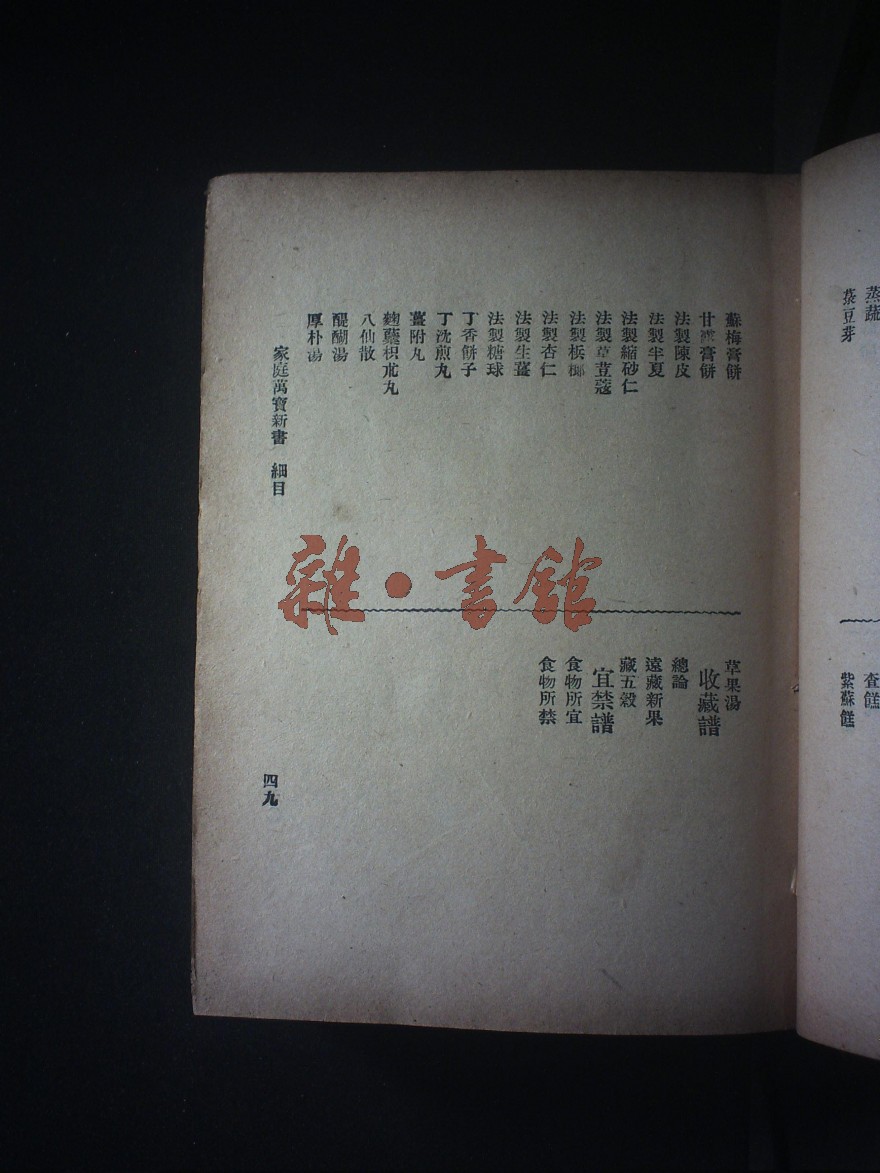 蒸蔬
菉豆芽
查𩜶
紫蘇𩜶
蘇梅膏餅
甘露膏餅
法製陳皮
法製半夏
法製縮砂仁
法製草荳蔻
法製梹榔
法製杏仁
法製生薑
法製糖球
丁香餅子
丁沈煎丸
薑附丸
麯糵枳朮丸
八仙散
醍醐湯
厚朴湯
草果湯
收藏譜
總論
遠藏新果
藏五穀
宜禁譜
食物所宜
食物所禁
家庭萬寶新書 細目
四九
雜·書館